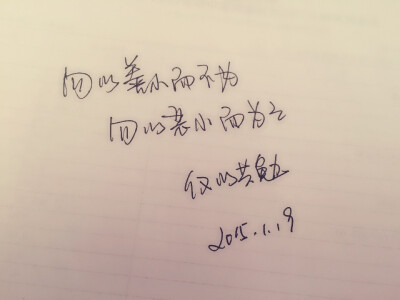 勿以善小而不为
勿以恶小而为之
仅以共勉
2015.1.19